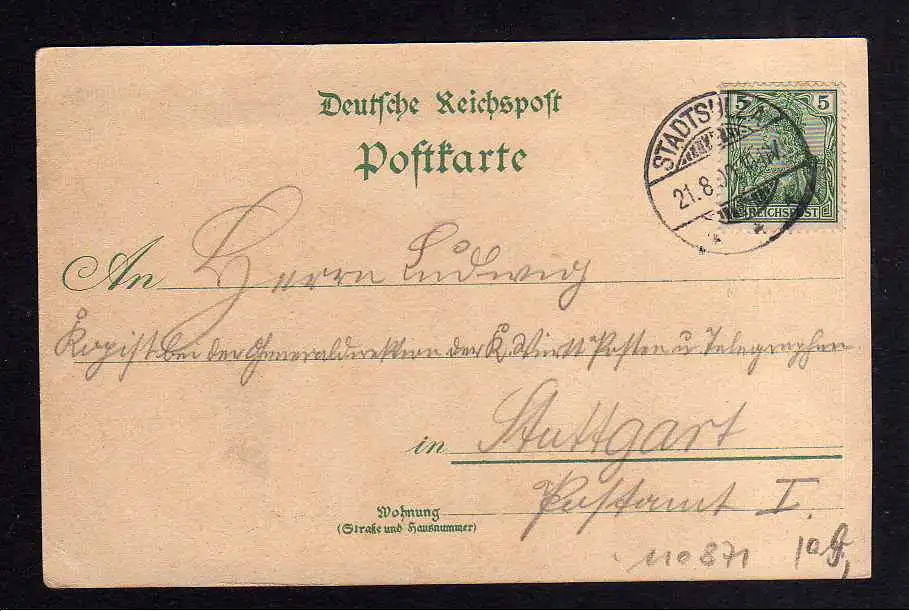 Deutsche Reichspost
Postkarte
5 5
REICHSPOST
STADTSULZA
21.8.
An Herrn Ludwig
Kopist bei der Generaldirektion der K. Württ Posten u Telegraphen
in Stuttgart
Postamt I.
Wohnung
(Straße und Hausnummer)
110871